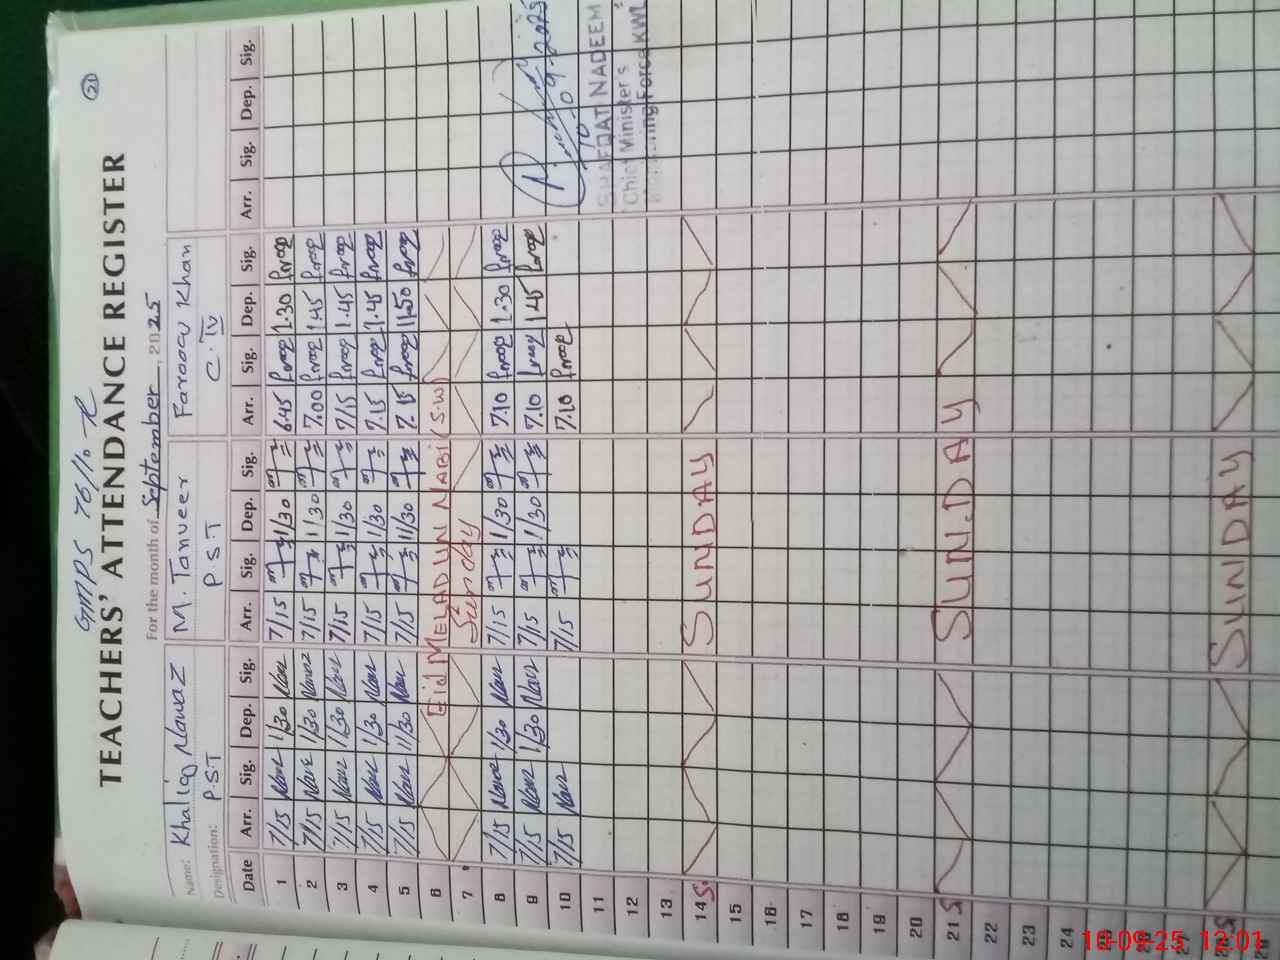 21
GMPS 76/16-R
TEACHERS' ATTENDANCE REGISTER
For the month of September, 2025
Name: Khaliq Nawaz M. Tanveer Farooq Khan
Designation: P.S.T P.S.T C.IV
Date Arr. Sig. Dep. Sig. Arr. Sig. Dep. Sig. Arr. Sig. Dep. Sig. Arr. Sig. Dep. Sig.
1 7/15 Nawz 1/30 Nawz 7/15 1/30 6.45 farooq 1.30 farooq
2 7/15 Nawz 1/30 Nawz 7/15 1/30 7.00 farooq 1.45 farooq
3 7/15 Nawz 1/30 Nawz 7/15 1/30 7/15 farooq 1.45 farooq
4 7/15 Nawz 1/30 Nawz 7/15 1/30 7.15 farooq 1.45 farooq
5 7/15 Nawz 11/30 Nawz 7/15 11/30 7.15 farooq 11.50 farooq
6 Eid MELADUN NABI (S.W)
7 Sunday
8 7/15 Nawz 1/30 Nawz 7/15 1/30 7.10 farooq 1.30 farooq
9 7/15 Nawz 1/30 Nawz 7/15 1/30 7.10 farooq 1.45 farooq
10 7/15 Nawz 7/15 7.10 farooq
10-09-2025
SHAFQAT NADEEM
Chief Minister's
Monitoring Force KWL
11
12
13
14 S. SUNDAY
15
16
17
18
19
20
21 S SUNDAY
22
23
24
26
27
28 S SUNDAY
29
10-09-25 12:01